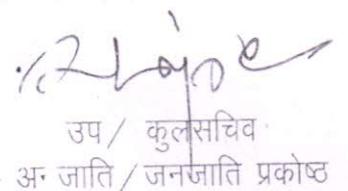 उप / कुलसचिव
अ॰ जाति / जनजाति प्रकोष्ठ